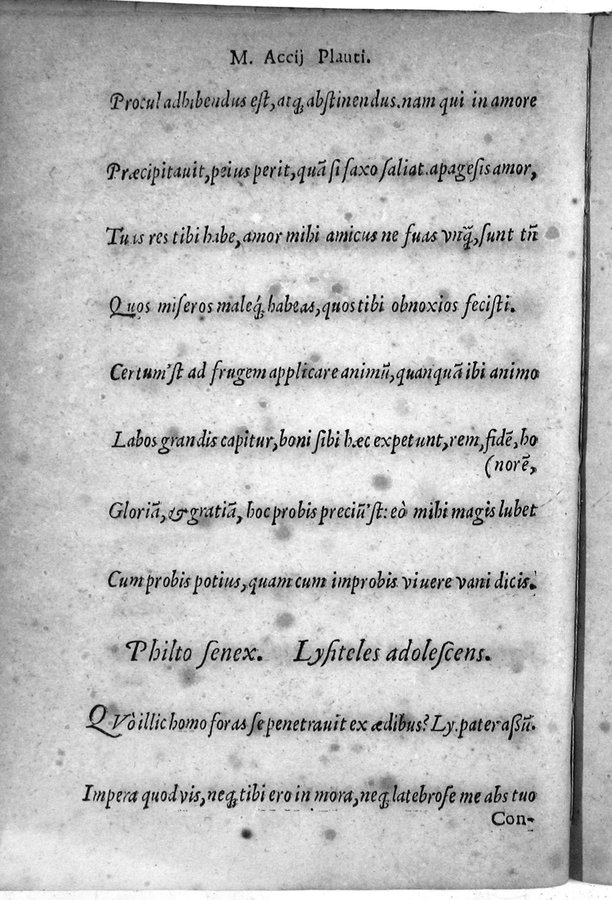 M. Accij Plauti.
Procul adhibendus eſt, atq; abſtinendus. nam qui in amore
Præcipitauit, peius perit, quã ſi ſaxo ſaliat. apageſis amor,
Tuas res tibi habe, amor mihi amicus ne fuas vnq̃, ſunt tñ
Quos miſeros maleq́; habeas, quos tibi obnoxios feciſti.
Certum'ſt ad frugem applicare animũ, quanquã ibi animo
Labos grandis capitur, boni ſibi hæc expetunt, rem, fidẽ, ho
(norẽ,
Gloriã, & gratiã, hoc probis preciũ'ſt: eò mihi magis lubet
Cum probis potius, quam cum improbis viuere vani dicis.
Philto ſenex. Lyſiteles adoleſcens.
QVò illic homo foras ſe penetrauit ex ædibus? Ly. pater aſſũ.
Impera quod vis, neq; tibi ero in mora, neq; latebroſe me abs tuo
Con-